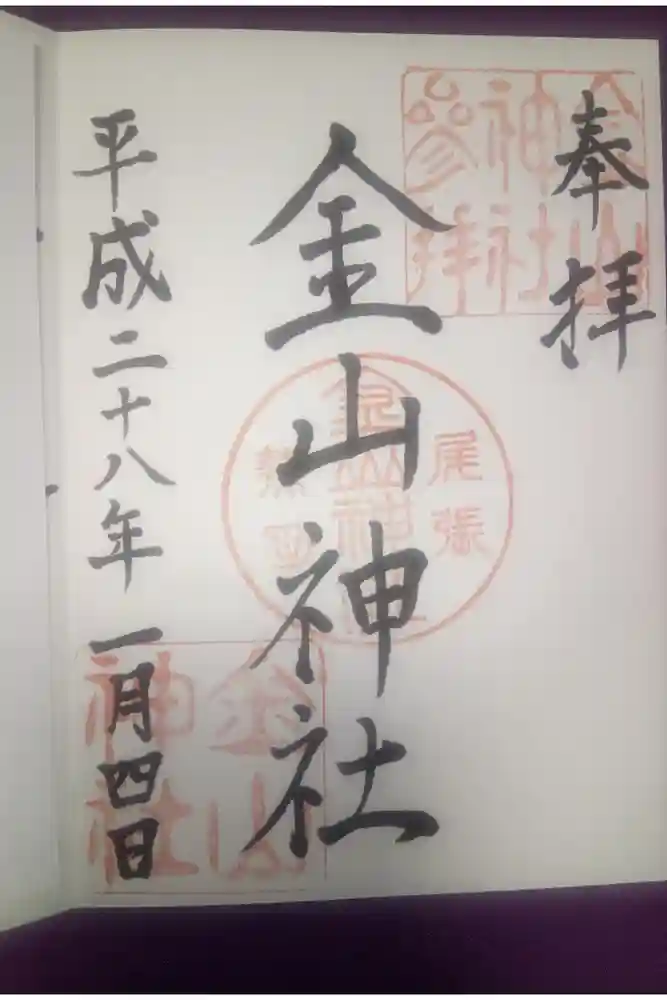 奉拝
金山神社参拝
金山神社
尾張
平成二十八年一月四日
金山神社